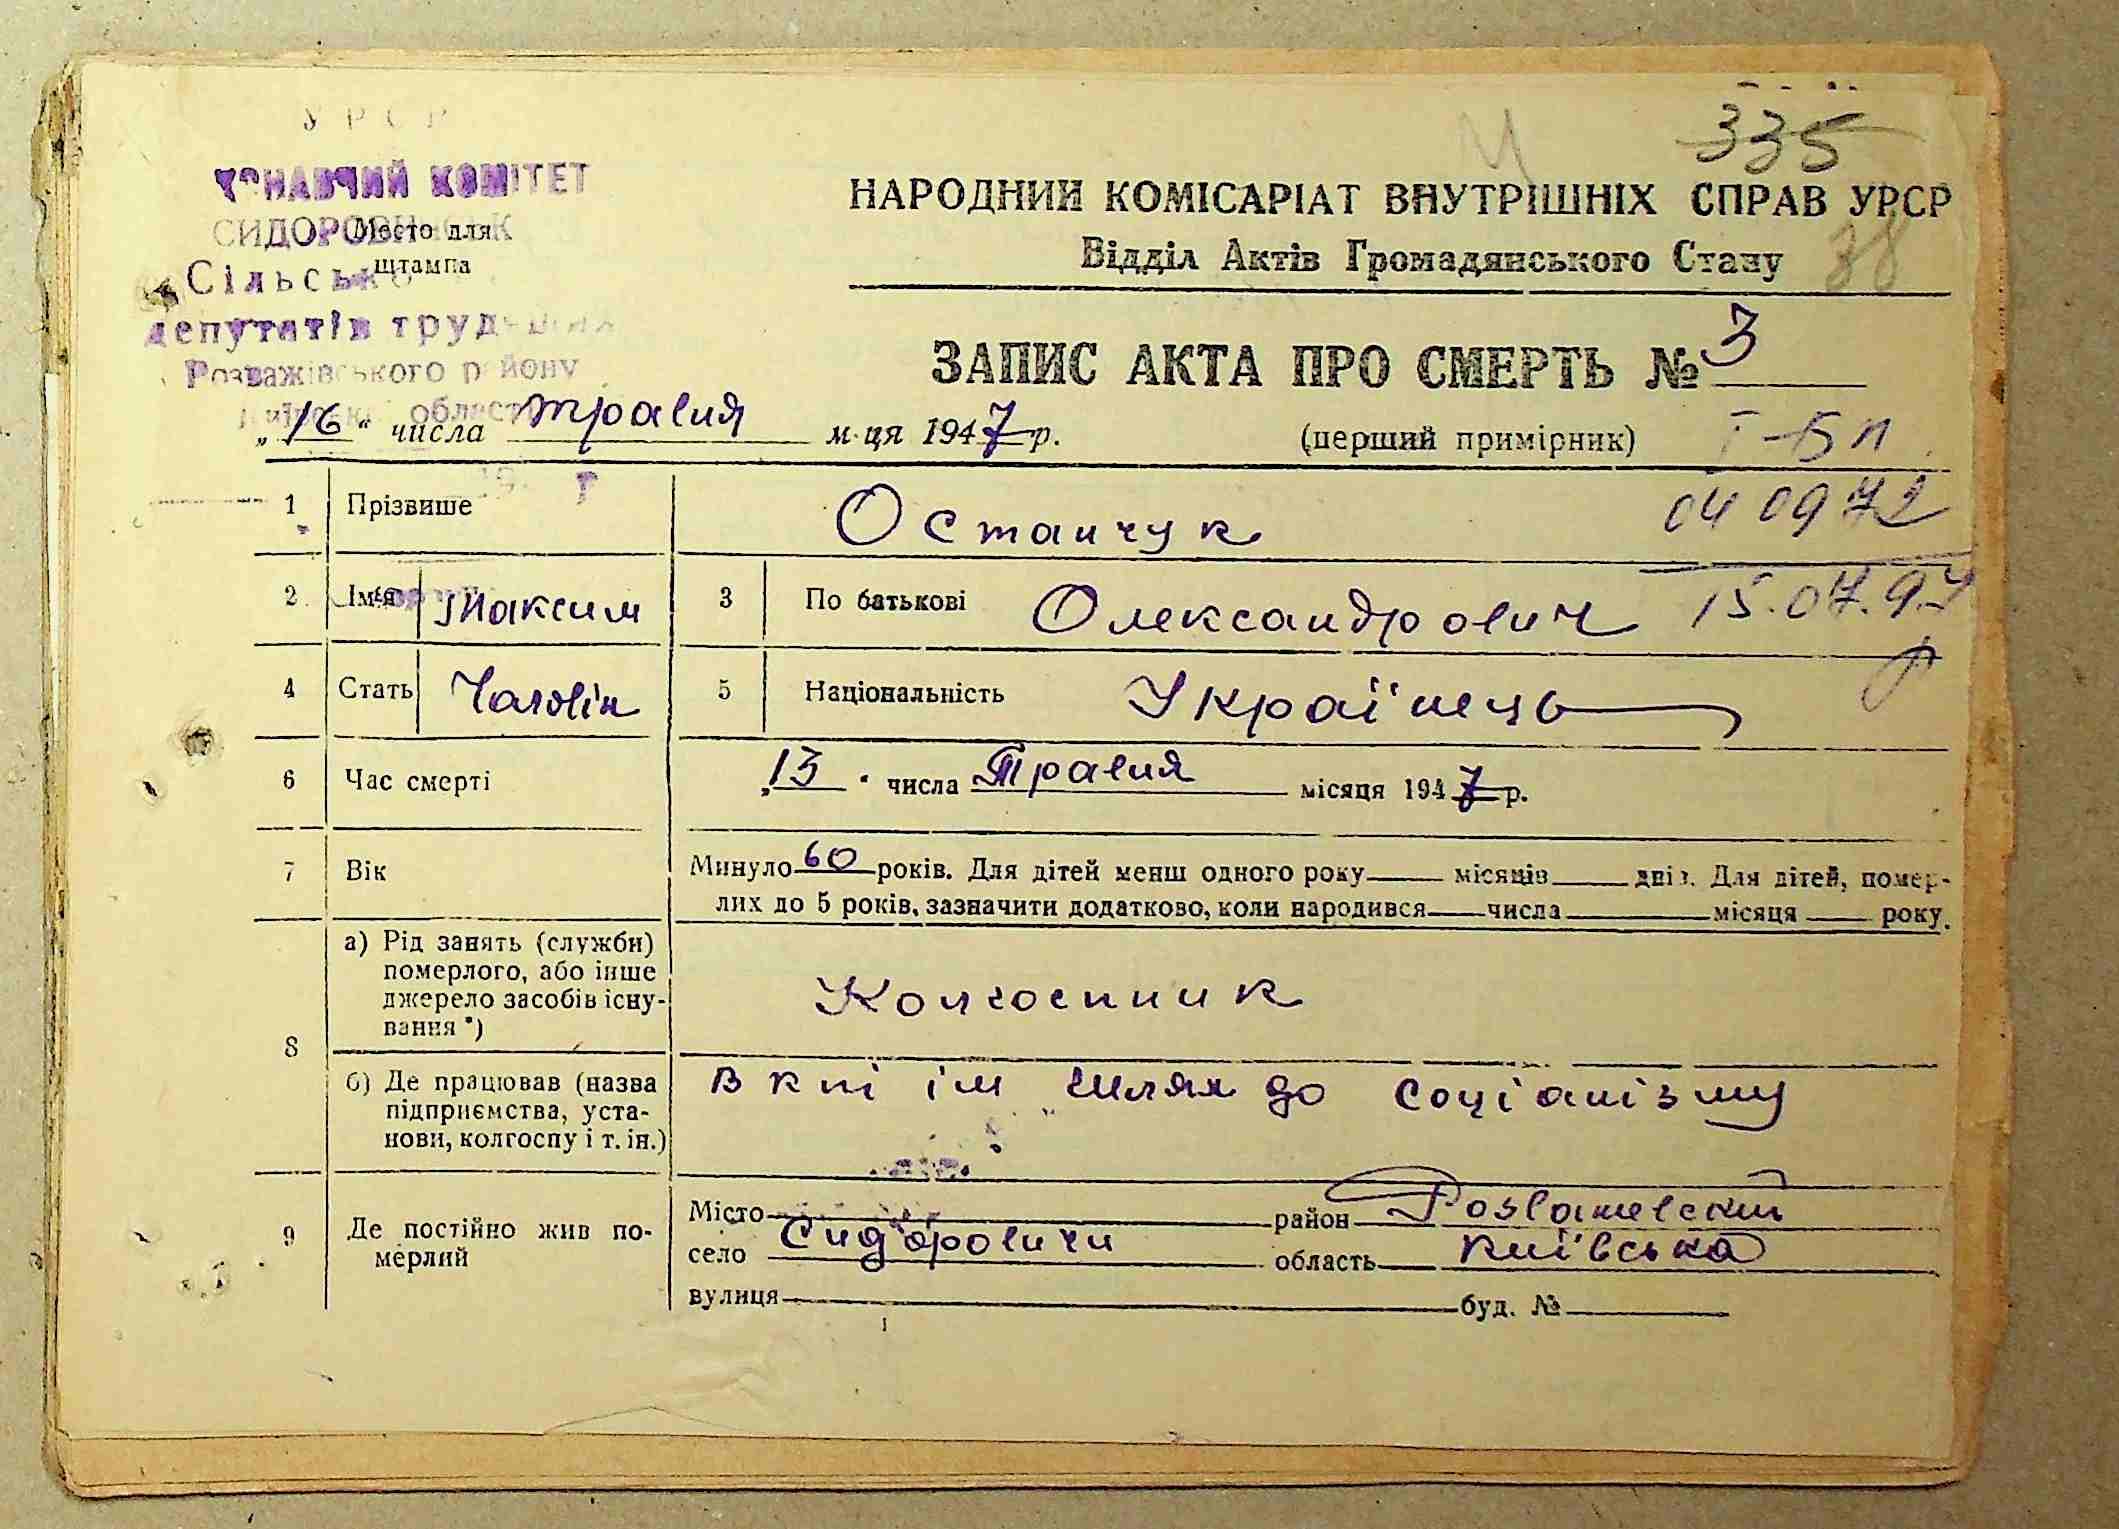 УРСР
335
КОМІТЕТ
Место для
штампа
депутатів
Розважівського району
НАРОДНИЙ КОМІСАРІАТ ВНУТРІШНІХ СПРАВ УРСР
Відділ Актів Громадянського Стану
38
ЗАПИС АКТА ПРО СМЕРТЬ № 3
„16“ числа травня м-ця 1947 р. (перший примірник)
1 Прізвише Остапчук
04 09 72
2 Ім'я Максим 3 По батькові Олександрович
15.07.97
4 Стать Чоловік 5 Національність Українець
6 Час смерті „13“ числа Травня місяця 1947 р.
7 Вік Минуло 60 років. Для дітей менш одного року місяців днів. Для дітей, помер-
лих до 5 років, зазначити додатково, коли народився числа місяця року.
8 а) Рід занять (служби)
померлого, або інше
джерело засобів існу-
вання *)
Колгоспник
б) Де працював (назва
підприємства, уста-
нови, колгоспу і т. ін.)
в кпі ім Шлях до Соціалізму
9 Де постійно жив по-
мерлий
Місто район Розважевский
село Сидоровичи область Київська
вулиця буд. №